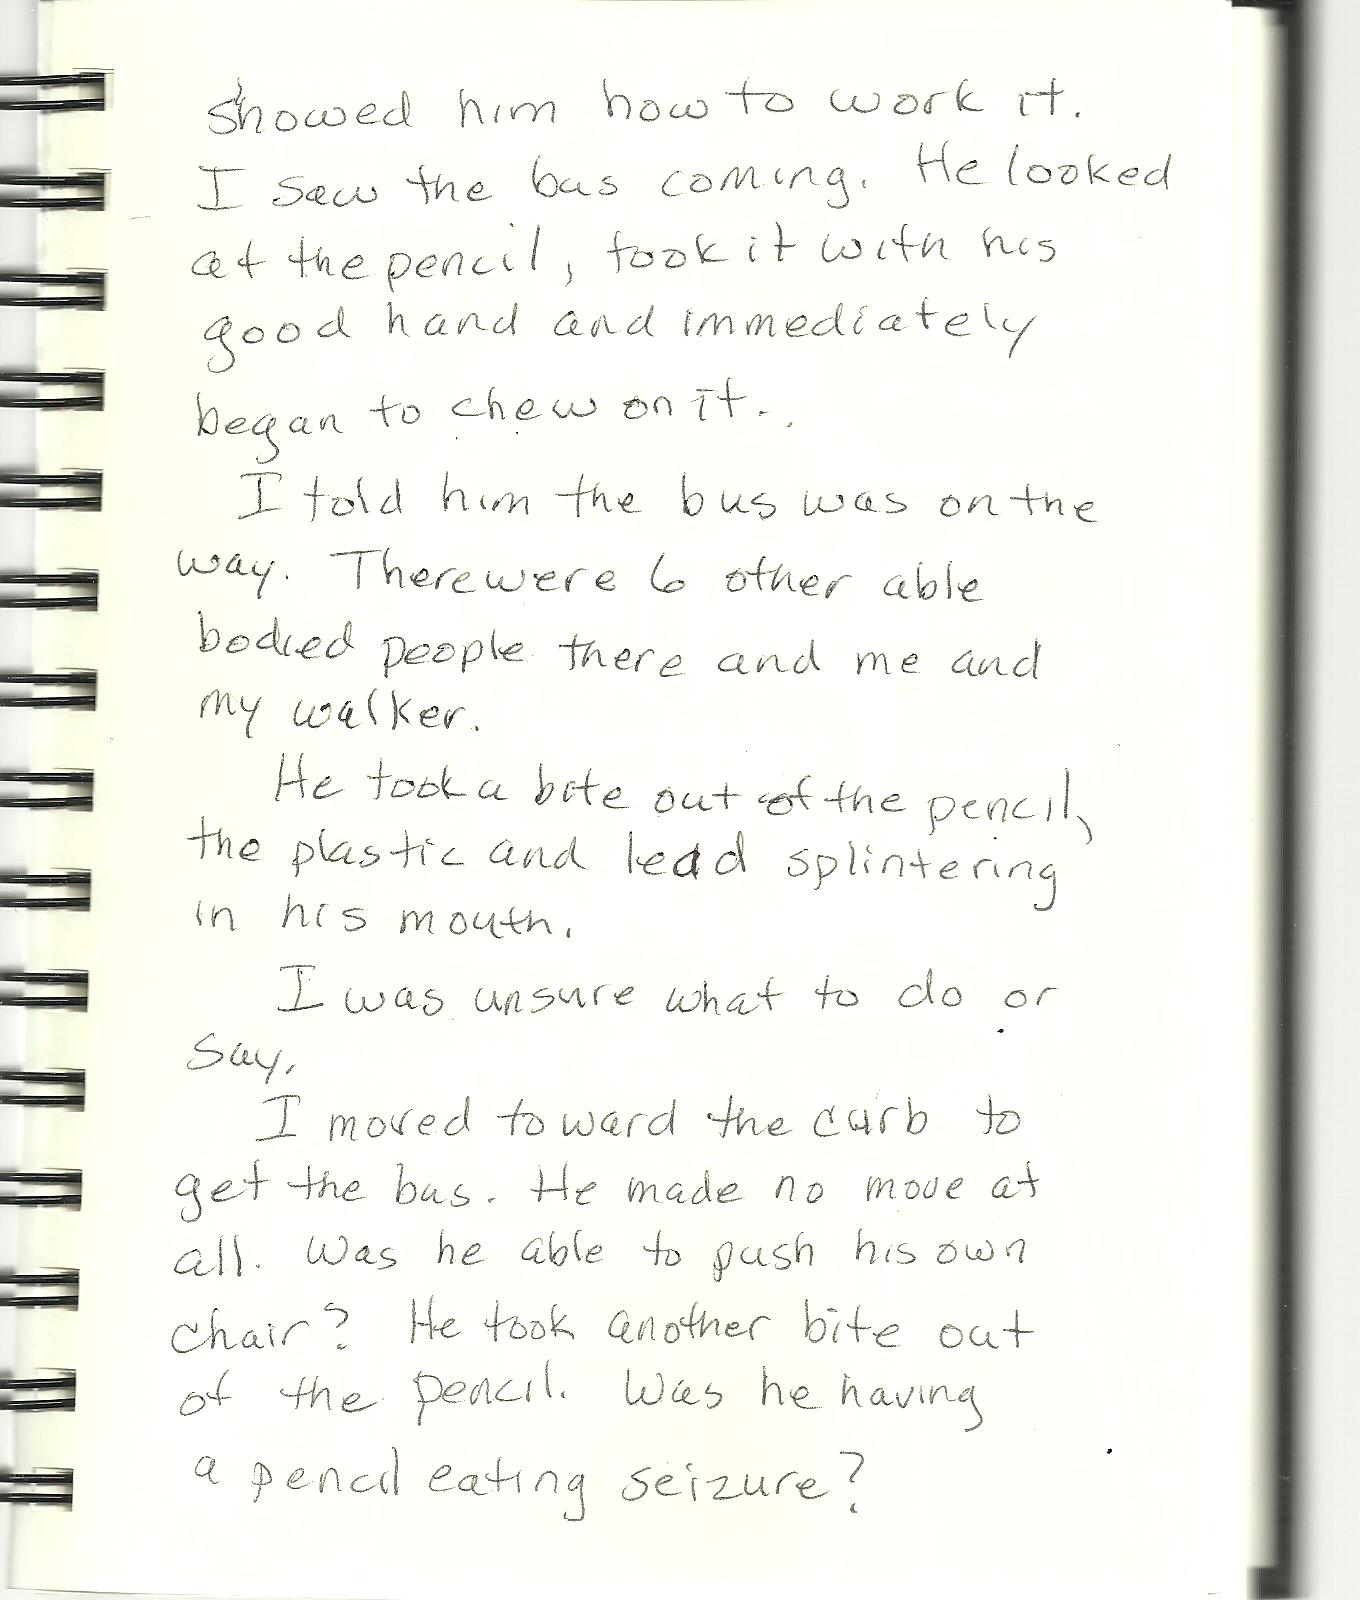 showed him how to work it.
I saw the bus coming. He looked
at the pencil, took it with his
good hand and immediately
began to chew on it.
I told him the bus was on the
way. There were 6 other able
bodied people there and me and
my walker.
He took a bite out of the pencil,
the plastic and lead splintering
in his mouth.
I was unsure what to do or
say.
I moved toward the curb to
get the bus. He made no move at
all. Was he able to push his own
chair? He took another bite out
of the pencil. Was he having
a pencil eating seizure?